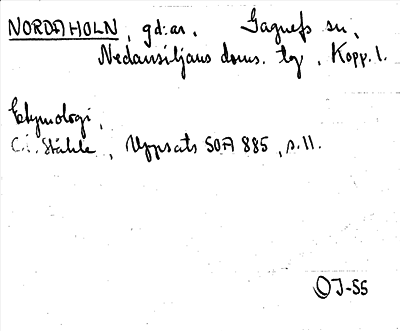 NORDAHOLN, gd:ar. Gagnefs sn,
Nedansiljans doms. tg, Kopp. l.
Etymologi,
C.I. Ståhle, Uppsats SOA 885, s. 11.
OJ-SS